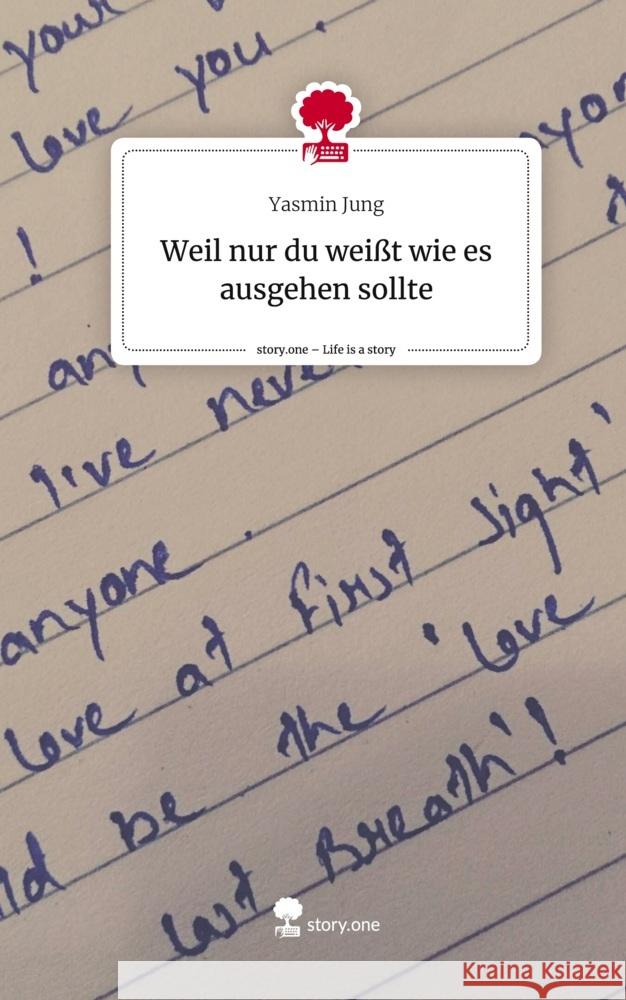 your
love you .
anyon
!
Yasmin Jung
Weil nur du weißt wie es
ausgehen sollte
story.one – Life is a story
any
live never
anyone .
love at first sight'
be the 'love
last Breath'!
story.one